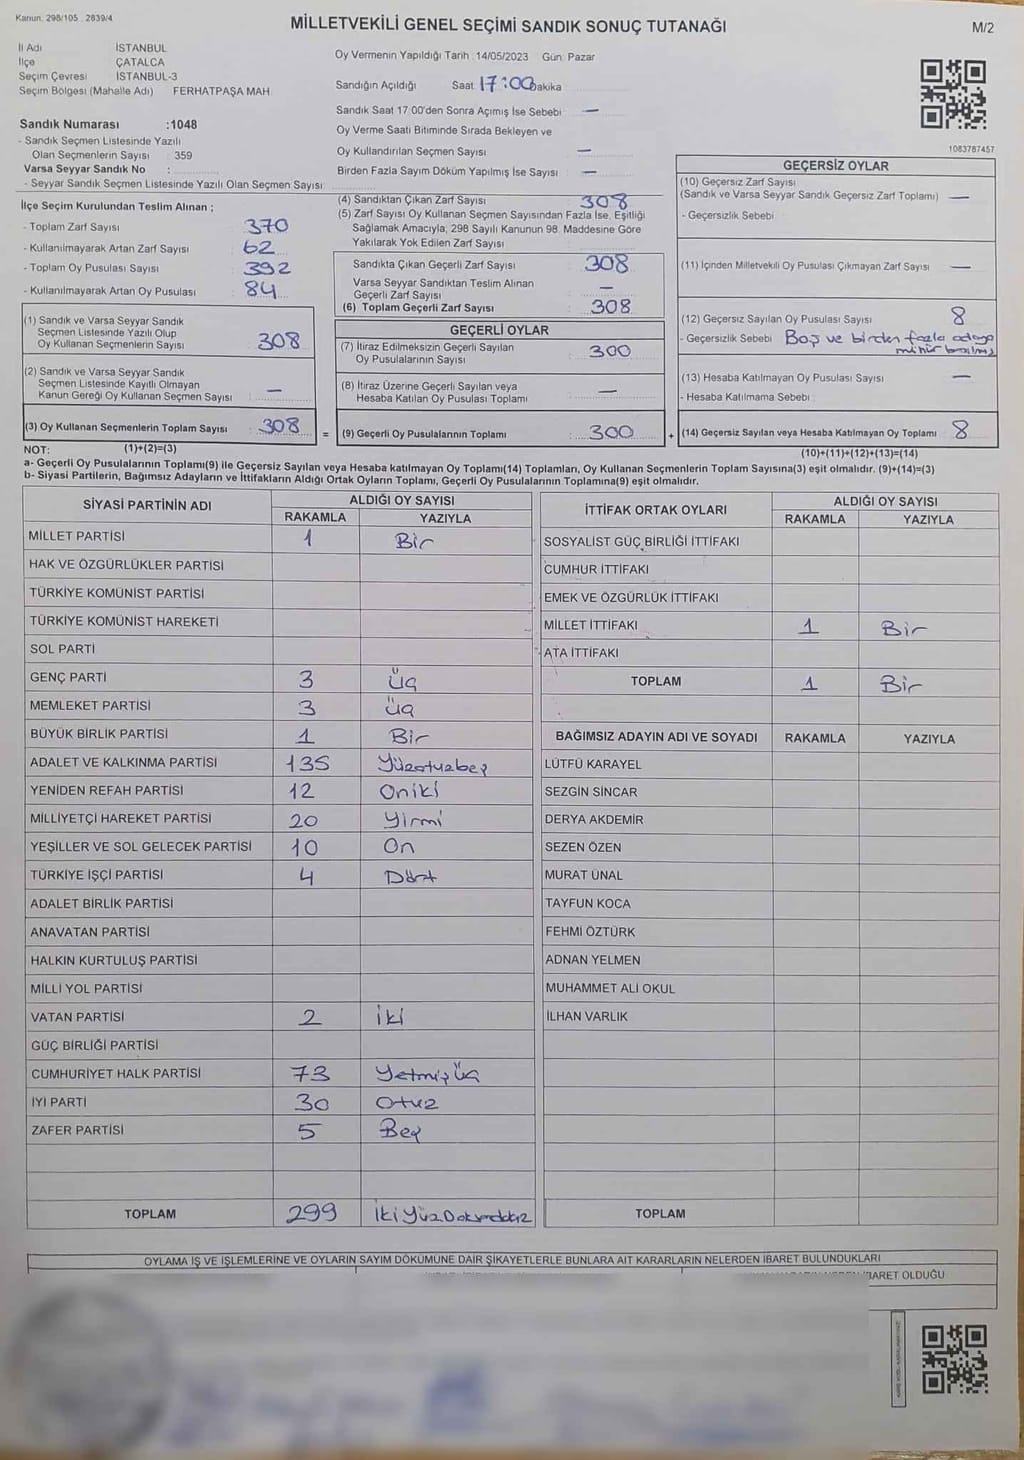 Kanun: 298/105 . 2839/4
MİLLETVEKİLİ GENEL SEÇİMİ SANDIK SONUÇ TUTANAĞI
M/2
İl Adı İSTANBUL
İlçe ÇATALCA
Seçim Çevresi İSTANBUL-3
Seçim Bölgesi (Mahalle Adı) FERHATPAŞA MAH.
Sandık Numarası :1048
- Sandık Seçmen Listesinde Yazılı
Olan Seçmenlerin Sayısı : 359
Varsa Seyyar Sandık No :
- Seyyar Sandık Seçmen Listesinde Yazılı Olan Seçmen Sayısı:
Oy Vermenin Yapıldığı Tarih :14/05/2023 Gün: Pazar
Sandığın Açıldığı Saat 17:00 Dakika
Sandık Saat 17:00'den Sonra Açımış İse Sebebi : —
Oy Verme Saati Bitiminde Sırada Bekleyen ve
Oy Kullandırılan Seçmen Sayısı : —
Birden Fazla Sayım Döküm Yapılmış İse Sayısı : —
1083787457
İlçe Seçim Kurulundan Teslim Alınan ;
- Toplam Zarf Sayısı : 370
- Kullanılmayarak Artan Zarf Sayısı : 62
- Toplam Oy Pusulası Sayısı : 392
- Kullanılmayarak Artan Oy Pusulası : 84
(1) Sandık ve Varsa Seyyar Sandık
Seçmen Listesinde Yazılı Olup
Oy Kullanan Seçmenlerin Sayısı : 308
(2) Sandık ve Varsa Seyyar Sandık
Seçmen Listesinde Kayıtlı Olmayan
Kanun Gereği Oy Kullanan Seçmen Sayısı : —
(3) Oy Kullanan Seçmenlerin Toplam Sayısı : 308
(4) Sandıktan Çıkan Zarf Sayısı : 308
(5) Zarf Sayısı Oy Kullanan Seçmen Sayısından Fazla İse, Eşitliği
Sağlamak Amacıyla, 298 Sayılı Kanunun 98. Maddesine Göre
Yakılarak Yok Edilen Zarf Sayısı :
Sandıkta Çıkan Geçerli Zarf Sayısı : 308
Varsa Seyyar Sandıktan Teslim Alınan
Geçerli Zarf Sayısı : —
(6) Toplam Geçerli Zarf Sayısı : 308
GEÇERLİ OYLAR
(7) İtiraz Edilmeksizin Geçerli Sayılan
Oy Pusulalarının Sayısı : 300
(8) İtiraz Üzerine Geçerli Sayılan veya
Hesaba Katılan Oy Pusulası Toplamı : —
= (9) Geçerli Oy Pusulalarının Toplamı : 300
GEÇERSİZ OYLAR
(10) Geçersiz Zarf Sayısı
(Sandık ve Varsa Seyyar Sandık Geçersiz Zarf Toplamı) : —
- Geçersizlik Sebebi :
(11) İçinden Milletvekili Oy Pusulası Çıkmayan Zarf Sayısı : —
(12) Geçersiz Sayılan Oy Pusulası Sayısı : 8
- Geçersizlik Sebebi : Boş ve birden fazla adaya
mühür basılmış
(13) Hesaba Katılmayan Oy Pusulası Sayısı : —
- Hesaba Katılmama Sebebi :
+ (14) Geçersiz Sayılan veya Hesaba Katılmayan Oy Toplamı : 8
NOT: (1)+(2)=(3)
(10)+(11)+(12)+(13)=(14)
a- Geçerli Oy Pusulalarının Toplamı(9) ile Geçersiz Sayılan veya Hesaba katılmayan Oy Toplamı(14) Toplamları, Oy Kullanan Seçmenlerin Toplam Sayısına(3) eşit olmalıdır. (9)+(14)=(3)
b- Siyasi Partilerin, Bağımsız Adayların ve İttifakların Aldığı Ortak Oyların Toplamı, Geçerli Oy Pusulalarının Toplamına(9) eşit olmalıdır.
SİYASİ PARTİNİN ADI ALDIĞI OY SAYISI
RAKAMLA YAZIYLA
MİLLET PARTİSİ 1 Bir
HAK VE ÖZGÜRLÜKLER PARTİSİ
TÜRKİYE KOMÜNİST PARTİSİ
TÜRKİYE KOMÜNİST HAREKETİ
SOL PARTİ
GENÇ PARTİ 3 Üç
MEMLEKET PARTİSİ 3 Üç
BÜYÜK BİRLİK PARTİSİ 1 Bir
ADALET VE KALKINMA PARTİSİ 135 Yüzotuzbeş
YENİDEN REFAH PARTİSİ 12 Oniki
MİLLİYETÇİ HAREKET PARTİSİ 20 Yirmi
YEŞİLLER VE SOL GELECEK PARTİSİ 10 On
TÜRKİYE İŞÇİ PARTİSİ 4 Dört
ADALET BİRLİK PARTİSİ
ANAVATAN PARTİSİ
HALKIN KURTULUŞ PARTİSİ
MİLLİ YOL PARTİSİ
VATAN PARTİSİ 2 İki
GÜÇ BİRLİĞİ PARTİSİ
CUMHURİYET HALK PARTİSİ 73 Yetmişüç
İYİ PARTİ 30 Otuz
ZAFER PARTİSİ 5 Beş
TOPLAM 299
İTTİFAK ORTAK OYLARI ALDIĞI OY SAYISI
RAKAMLA YAZIYLA
SOSYALİST GÜÇ BİRLİĞİ İTTİFAKI
CUMHUR İTTİFAKI
EMEK VE ÖZGÜRLÜK İTTİFAKI
MİLLET İTTİFAKI 1 Bir
ATA İTTİFAKI
TOPLAM 1 Bir
BAĞIMSIZ ADAYIN ADI VE SOYADI RAKAMLA YAZIYLA
LÜTFÜ KARAYEL
SEZGİN SİNCAR
DERYA AKDEMİR
SEZEN ÖZEN
MURAT ÜNAL
TAYFUN KOCA
FEHMİ ÖZTÜRK
ADNAN YELMEN
MUHAMMET ALİ OKUL
İLHAN VARLIK
TOPLAM
OYLAMA İŞ VE İŞLEMLERİNE VE OYLARIN SAYIM DÖKÜMÜNE DAİR ŞİKAYETLERLE BUNLARA AİT KARARLARIN NELERDEN İBARET BULUNDUKLARI
İBARET OLDUĞU